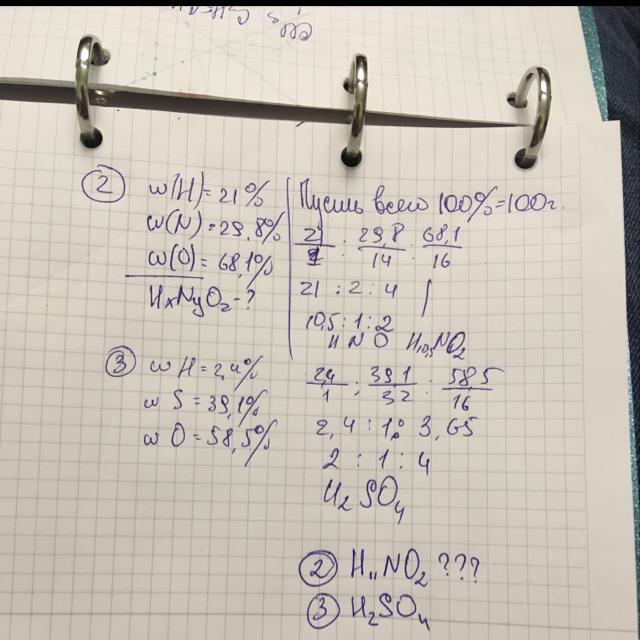 ② w(H) = 21%
w(N) = 29,8%
w(O) = 68,1%
HxNyOz - ?
Пусть всего 100% = 100г.
21/1 : 29,8/14 : 68,1/16
21 : 2 : 4
10,5 : 1 : 2
H N O H10,5NO2
③ w H = 2,4%
w S = 39,1%
w O = 58,5%
2,4/1 : 39,1/32 : 58,5/16
2,4 : 1,: 3,65
2 : 1 : 4
H2SO4
② H11NO2 ???
③ H2SO4